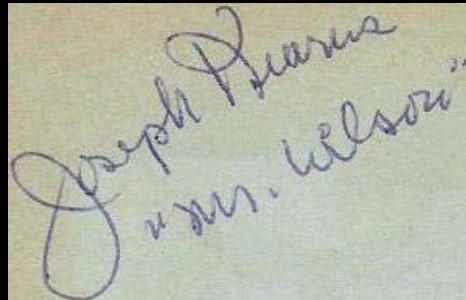 Joseph Kearns
"Mr. Wilson"